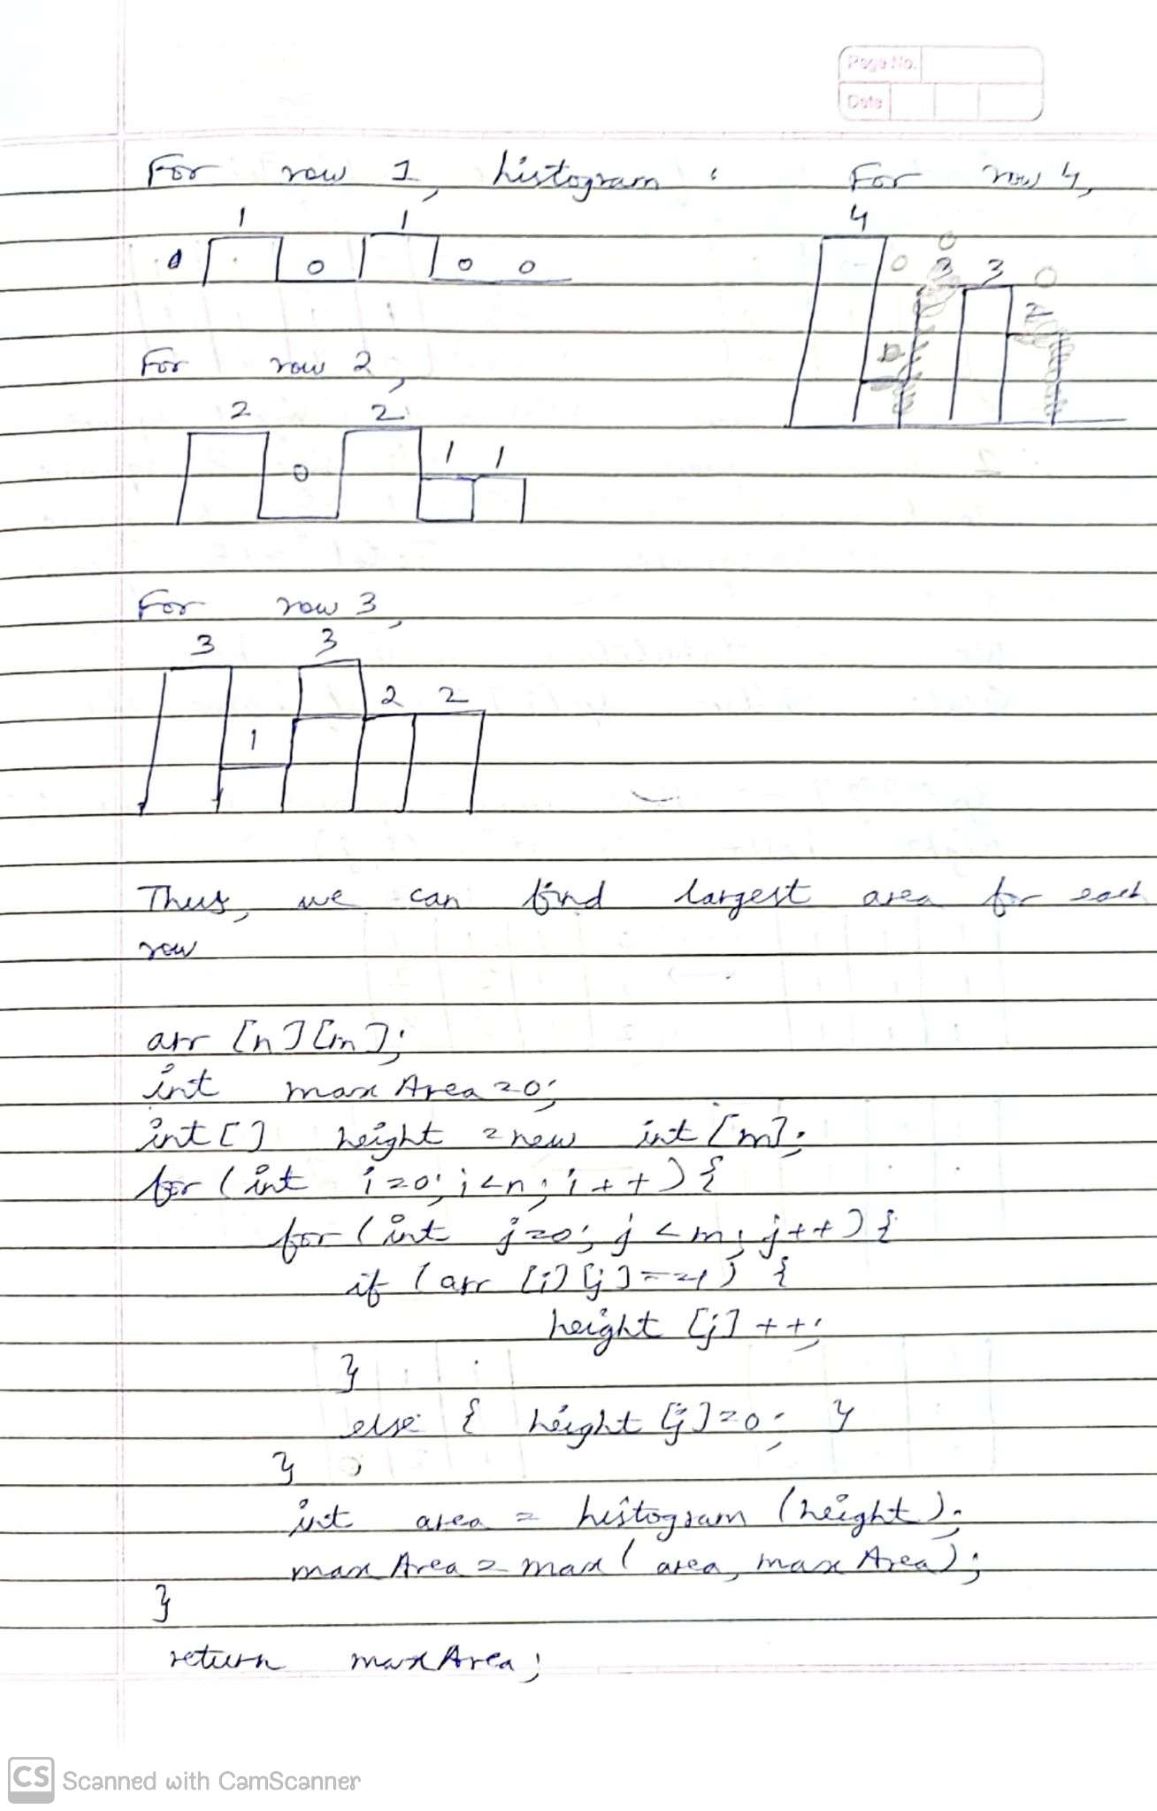 Page No.
Date
For row 1, histogram :
1 1
0 0 0 0
For row 4,
4
0 0
3 3 0
2
0
For row 2,
2 2
0 1 1
For row 3,
3 3
2 2
1
Thus, we can find largest area for each
row
arr [n][m];
int maxArea=0;
int[] height = new int [m];
for (int i=0; i<n; i++) {
for (int j=0; j<m; j++) {
if (arr [i][j]==1) {
height [j]++;
}
else { height [j]=0; }
}
int area = histogram (height);
maxArea = max( area, maxArea);
}
return maxArea;
CS Scanned with CamScanner